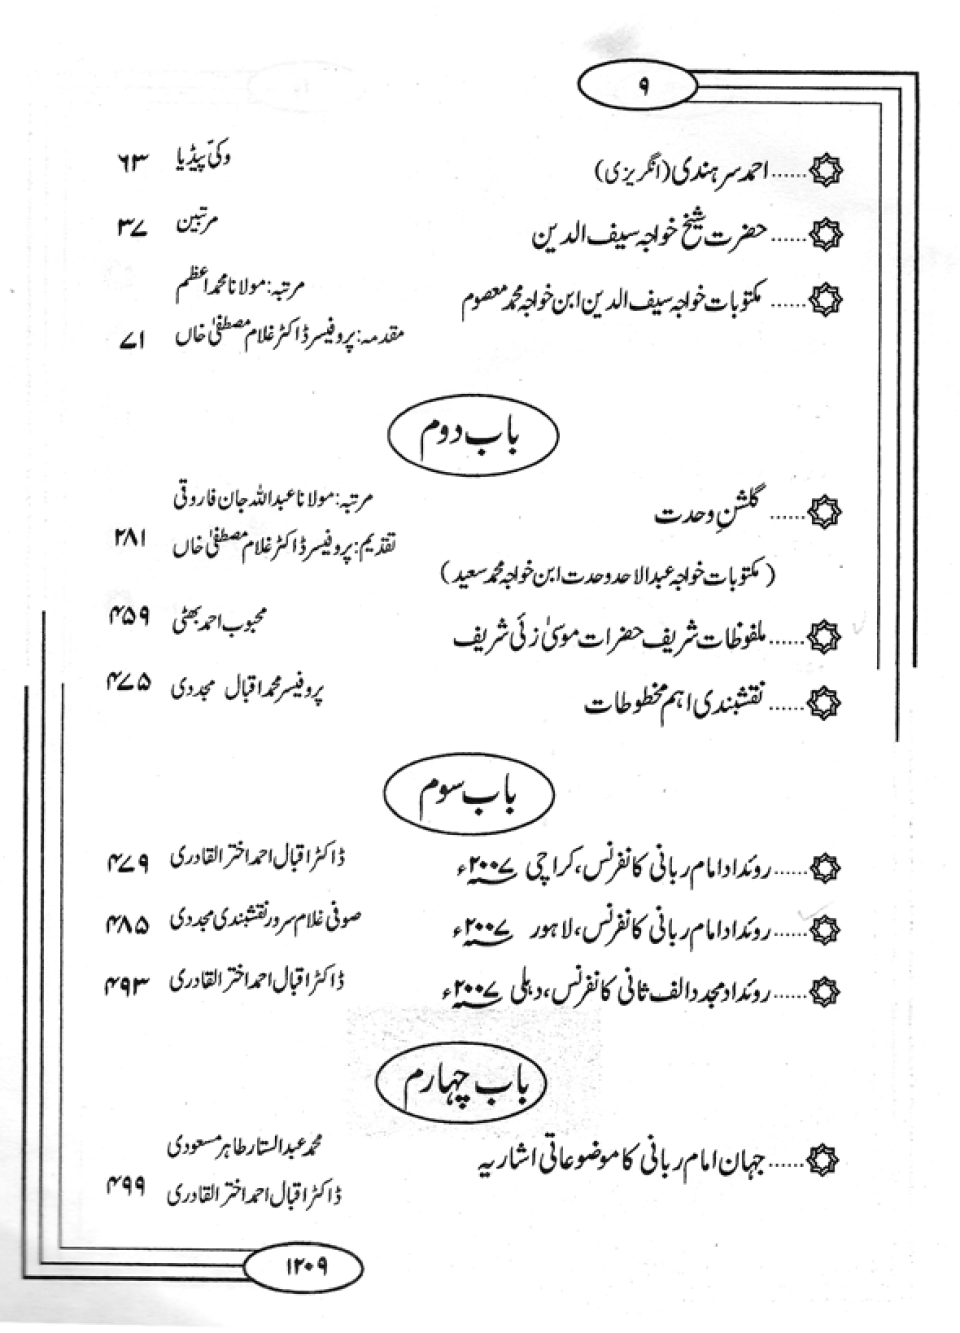 ۹
احمد سرہندی (انگریزی) ...... وکی پیڈیا ۶۳
حضرت شیخ خواجہ سیف الدین ...... مرتبین ۳۷
مکتوبات خواجہ سیف الدین ابن خواجہ محمد معصوم ...... مرتبہ: مولانا محمد اعظم
مقدمہ: پروفیسر ڈاکٹر غلام مصطفیٰ خاں ۷۱
باب دوم
گلشنِ وحدت ...... مرتبہ: مولانا عبداللہ جان فاروقی
تقدیم: پروفیسر ڈاکٹر غلام مصطفیٰ خاں ۲۸۱
(مکتوبات خواجہ عبدالاحد وحدت ابن خواجہ محمد سعید)
ملفوظات شریف حضرات موسیٰ زئی شریف ...... محبوب احمد بھٹی ۴۵۹
نقشبندی اہم مخطوطات ...... پروفیسر محمد اقبال مجددی ۴۷۵
باب سوم
روئداد امام ربانی کانفرنس، کراچی ۲۰۰۷ء ...... ڈاکٹر اقبال احمد اختر القادری ۴۷۹
روئداد امام ربانی کانفرنس، لاہور ۲۰۰۷ء ...... صوفی غلام سرور نقشبندی مجددی ۴۸۵
روئداد مجدد الف ثانی کانفرنس، دہلی ۲۰۰۷ء ...... ڈاکٹر اقبال احمد اختر القادری ۴۹۳
باب چہارم
جہان امام ربانی کا موضوعاتی اشاریہ ...... محمد عبدالستار طاہر مسعودی
ڈاکٹر اقبال احمد اختر القادری ۴۹۹
۱۲۰۹